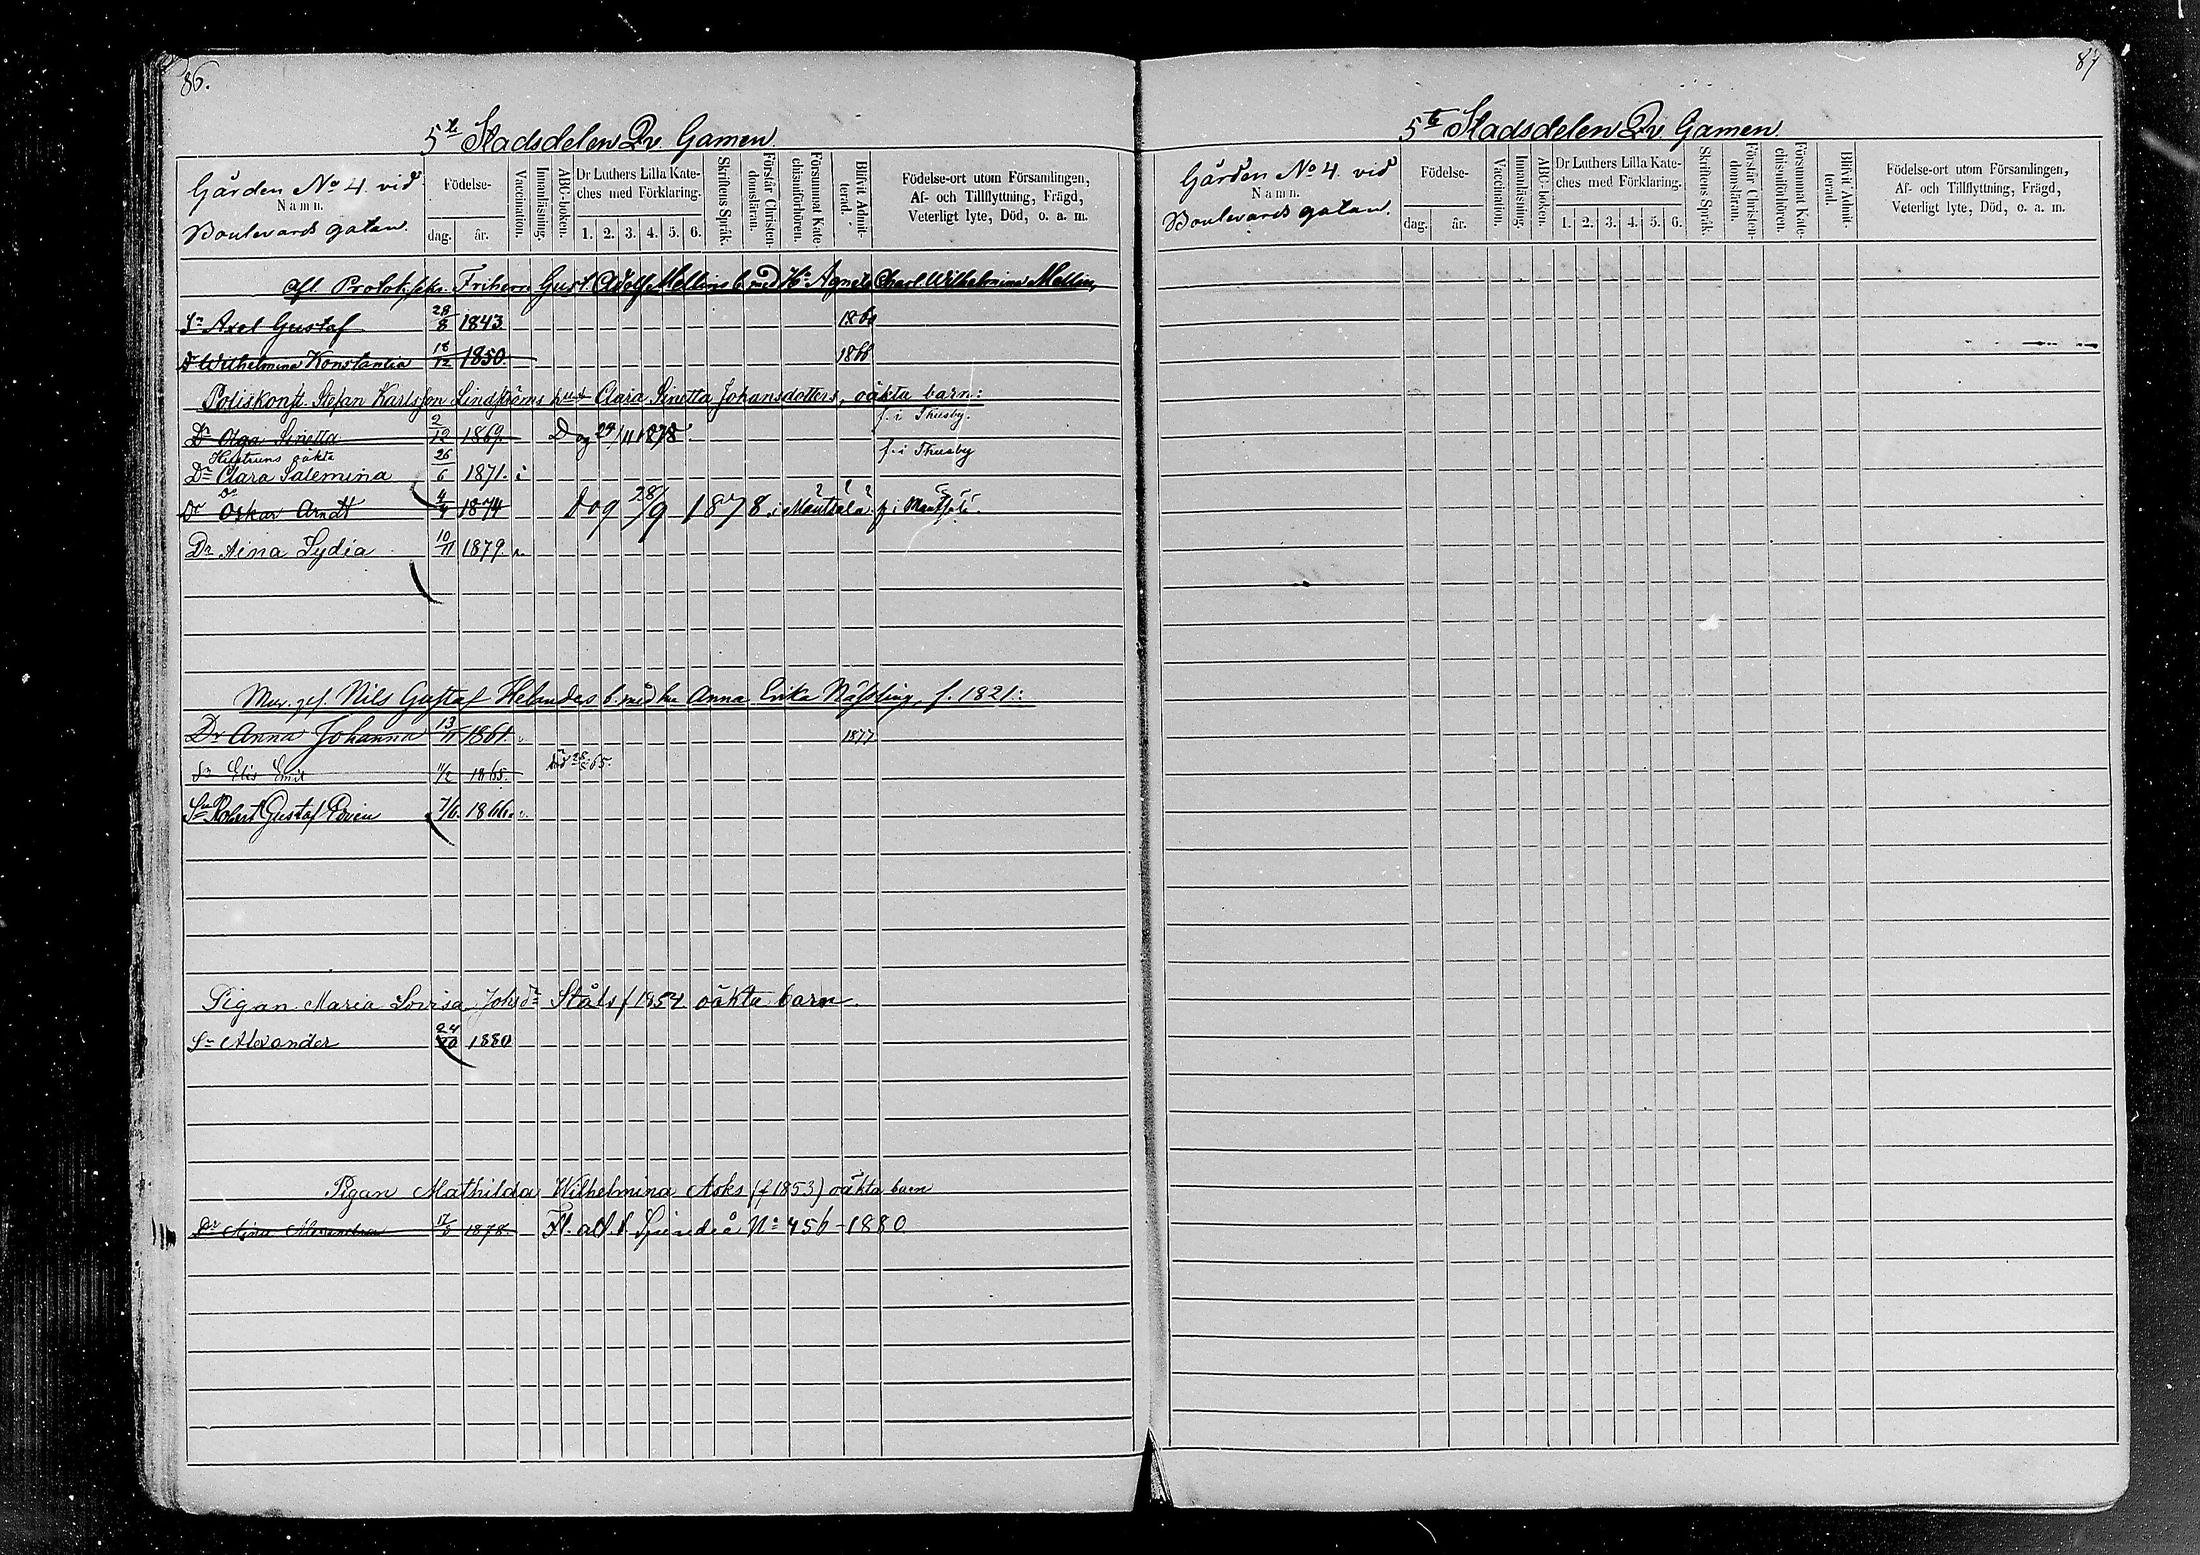 86.
5te Stadsdelen Qv. Gamen
Gården No 4. vid
Namn.
Boulevards gatan.
Födelse-
dag. år.
Vaccination.
Innanläsning.
ABC-boken.
Dr Luthers Lilla Kate-
ches med Förklaring.
1. 2. 3. 4. 5. 6.
Skriftens Språk.
Förstår Christen-
domsläran.
Försummat Kate-
chismiförhören.
Blifvit Admit-
terad.
Födelse-ort utom Församlingen,
Af- och Tillflyttning, Frägd,
Veterligt lyte, Död, o. a. m.
Protok.sekr. Friherre Gust. Adolf Mellins b. med H. Agneta Charl. Wilhelmina Mellin,
Sn Axel Gustaf 28/8 1843
Dr Wilhelmina Konstantia 18/12 1850. 1866
Poliskonst. Stefan Karlsson Lindströms hust. Clara Sinetta Johansdotters, oäkta barn:
Dr Olga Sinetta 2/12 1869. Dog 29/11 1878 f. i Thusby.
Hustruns oäkta
Dr Clara Salemina 26/6 1871. f. i Thusby
Do
Oskar Arndt 4/4 1874 Dog 28/9 1878 i Mäntsälä. f. i Mäntsälä.
Dr Aina Lydia 10/11 1879.
Mur. ges. Nils Gustaf Helanders b. med hu Anna Erika f. 1821:
Dr Anna Johanna 13/11 1861 1877
Sn Elis Emil 11/2 1865. död 65.
Sn Robert Gustaf Edvin 7/6. 1866.
Pigan Maria Lovisa Johsdr Ståls f 1854 oäkta barn.
Sn Alexander 24/10 1880
Pigan Mathilda Wilhelmina Asks (f 1853) oäkta barn
Dr Alexandra 1878. Fl. att. t. Sjundeå No 456 - 1880
87
5te Stadsdelen Qv. Gamen
Gården No 4. vid
Namn.
Boulevards gatan.
Födelse-
dag. år.
Vaccination.
Innanläsning.
ABC-boken.
Dr Luthers Lilla Kate-
ches med Förklaring.
1. 2. 3. 4. 5. 6.
Skriftens Språk.
Förstår Christen-
domsläran.
Försummat Kate-
chismiförhören.
Blifvit Admit-
terad.
Födelse-ort utom Församlingen,
Af- och Tillflyttning, Frägd,
Veterligt lyte, Död, o. a. m.